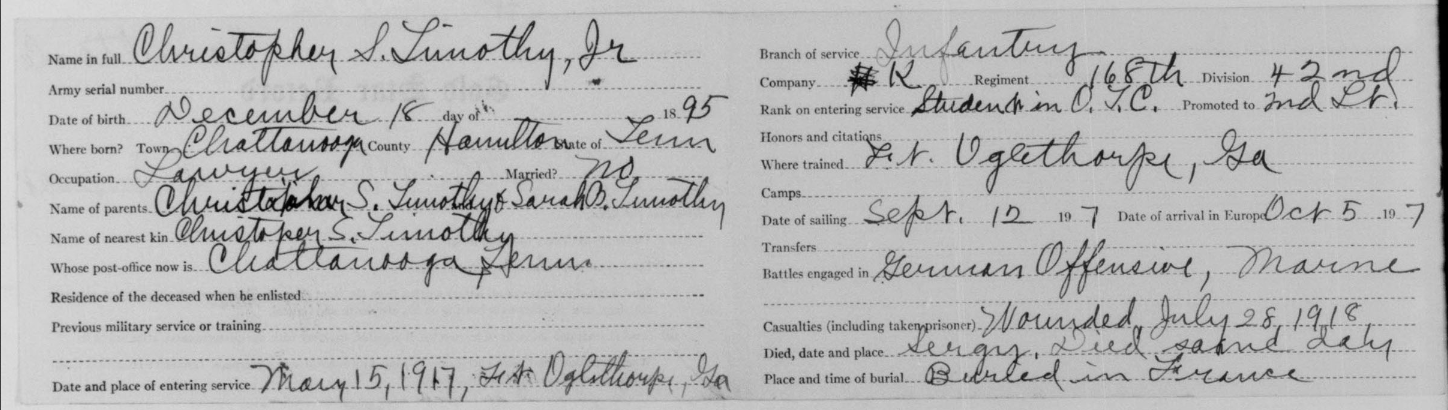 Name in full Christopher S. Timothy, Jr
Army serial number
Date of birth December 18 day of 1895
Where born? Town Chattanooga County Hamilton State of Tenn
Occupation Lawyer Married? No
Name of parents Christopher S. Timothy & Sarah B. Timothy
Name of nearest kin Christoper S. Timothy
Whose post-office now is Chattanooga, Tenn.
Residence of the deceased when he enlisted
Previous military service or training
Date and place of entering service May 15, 1917, Ft. Oglethorpe, Ga
Branch of service Infantry
Company K Regiment 168th Division 42nd
Rank on entering service Student in O.T.C. Promoted to 2nd Lt.
Honors and citations
Where trained Ft. Oglethorpe, Ga
Camps
Date of sailing Sept. 12 1917 Date of arrival in Europe Oct 5 1917
Transfers
Battles engaged in German Offensive, Marne
Casualties (including taken prisoner) Wounded, July 28, 1918,
Died, date and place Sergy. Died same day
Place and time of burial Buried in France